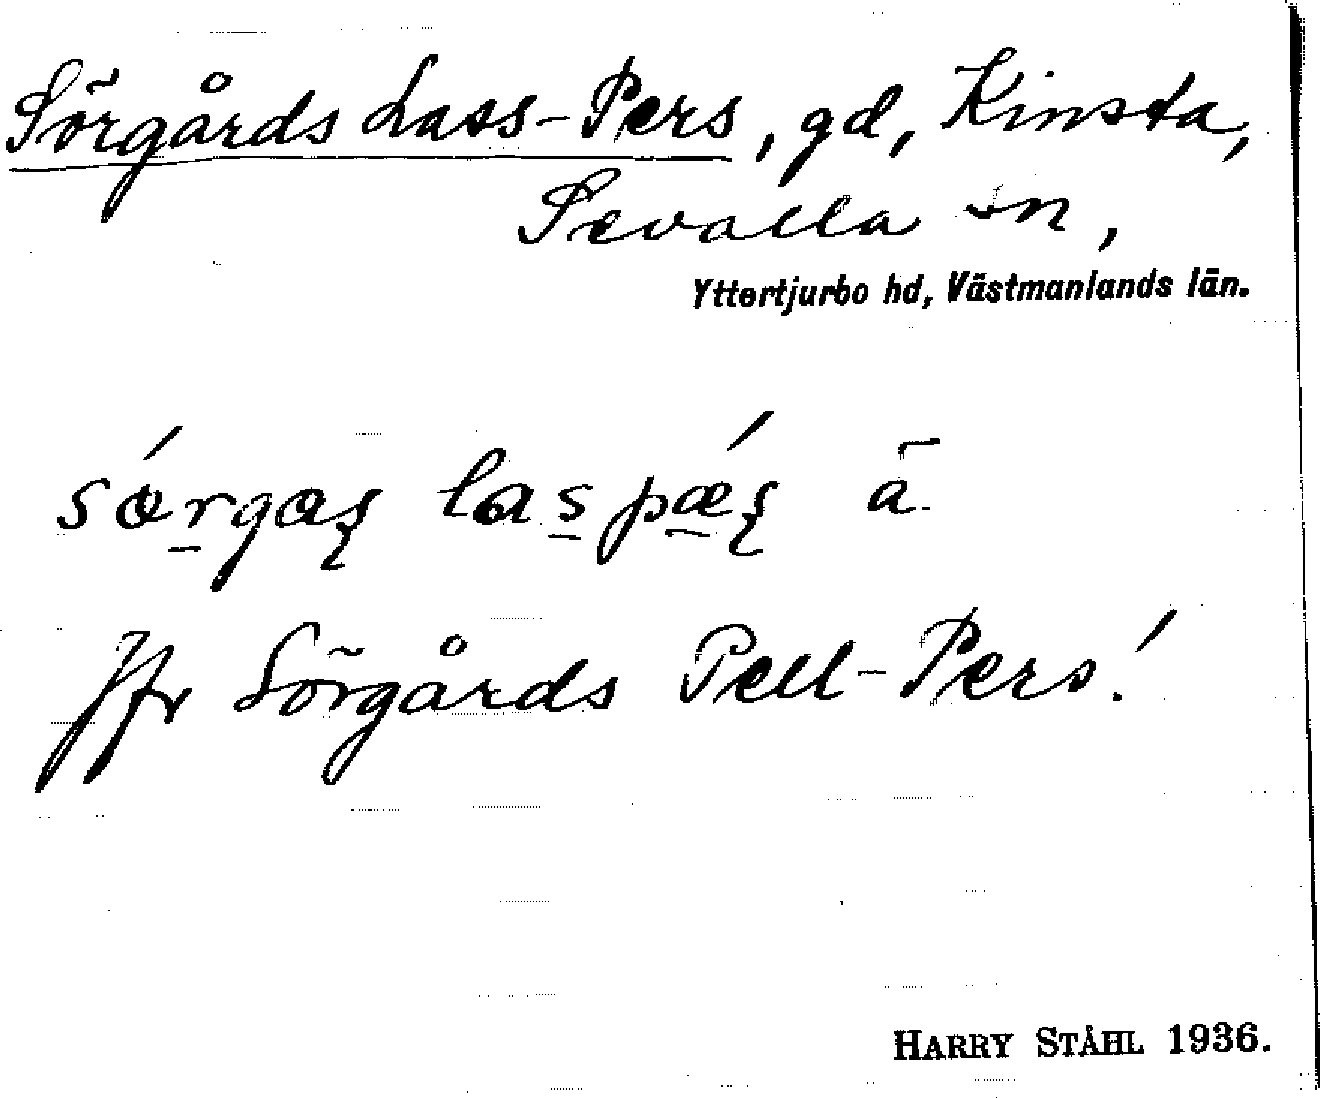 Sörgårds Lass-Pers, gd, Kinsta,
Sevalla sn,
Yttertjurbo hd, Västmanlands län.
sǿrgaʂ laspǽʂ ā
Jfr Sörgårds Pell-Pers!
HARRY STÅHL 1936.